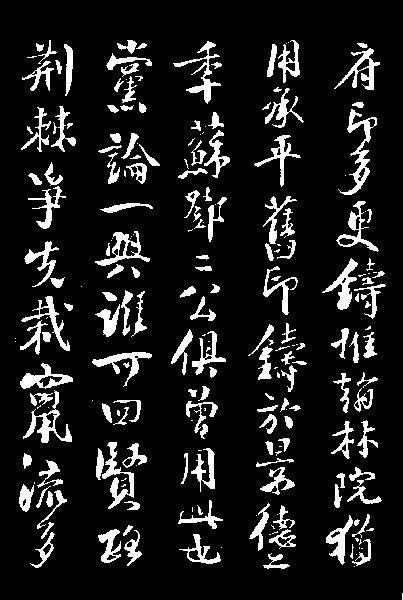 府印多更鑄惟翰林院猶
用承平舊印鑄於景德二
年蘇鄧二公俱曾用此也
黨論一興誰可回賢路
荆棘爭先栽竄流多